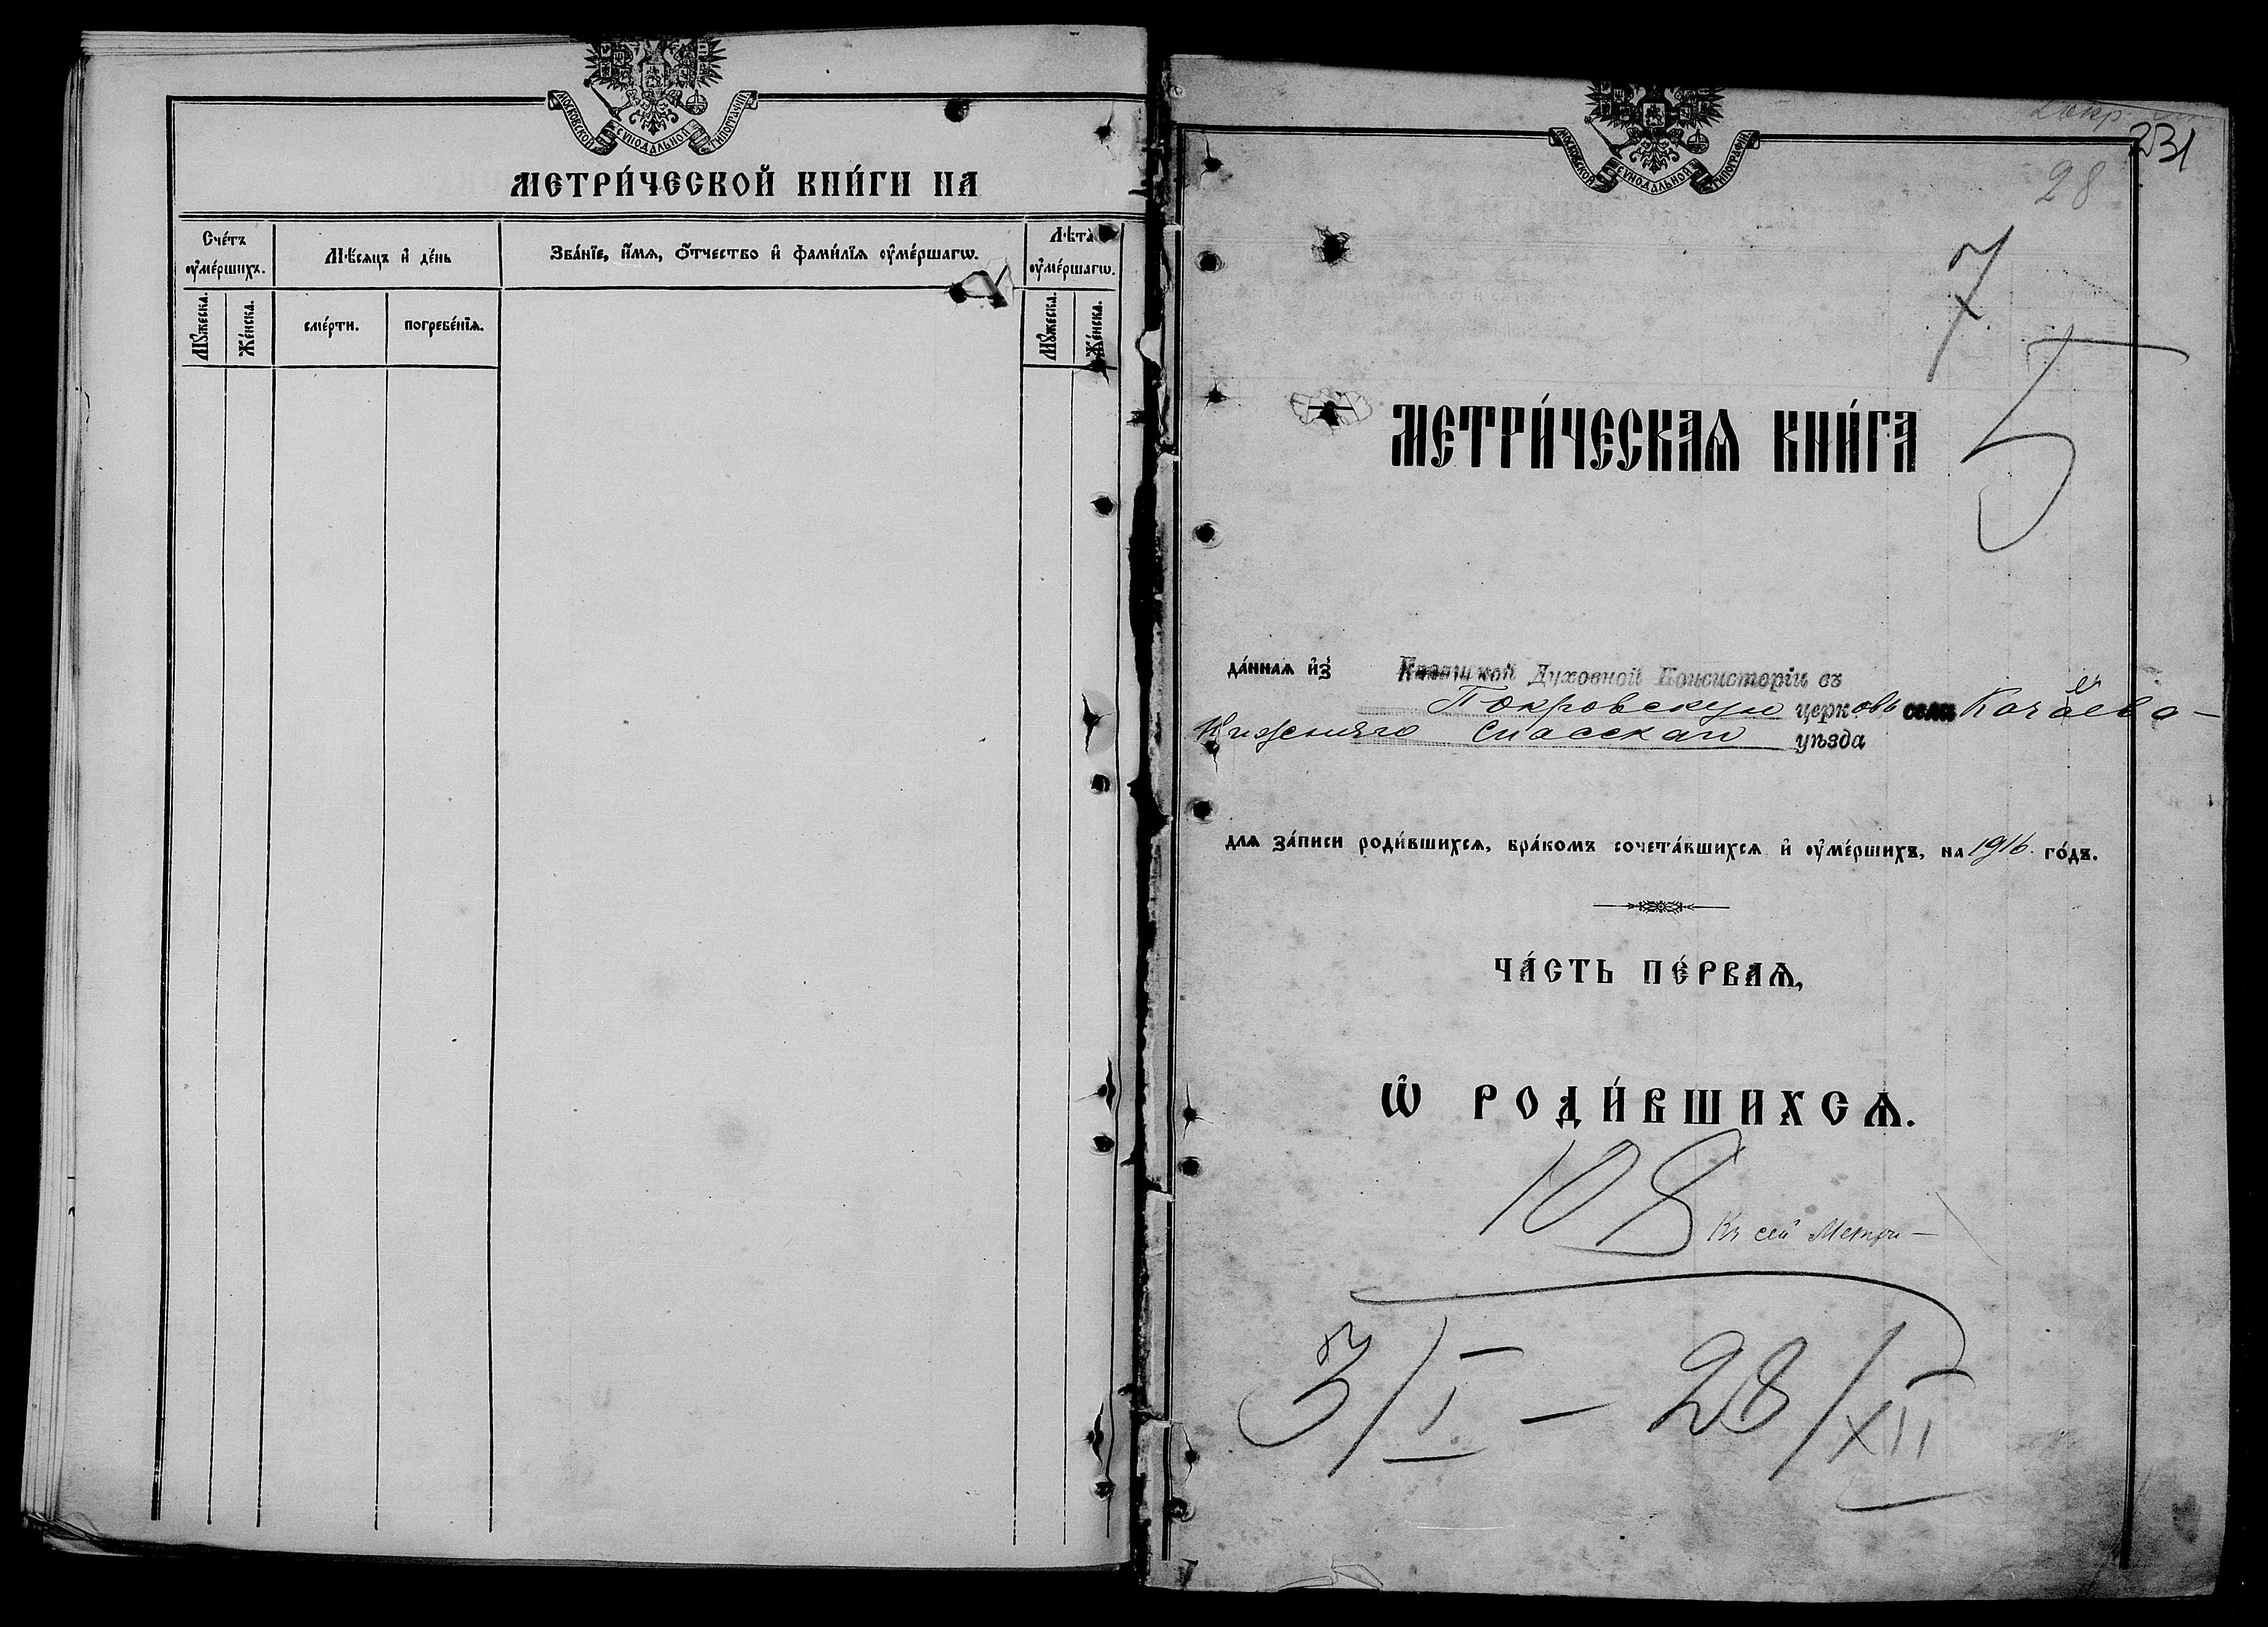 МОСКОВСКОЙ СѴНОДАЛЬНОЙ ТИПОГРАФІИ
МЕТРИ́ЧЕСКОЙ КНИ́ГИ НА
Сче́тъ ᲂу҆ме́ршихъ.
Мѣ́сяцъ и҆ де́нь
Зва́нїе, и҆́мѧ, ѻ҆́тчество и҆ фами́лїѧ ᲂу҆ме́ршагѡ.
Лѣта̀ ᲂу҆ме́ршагѡ.
Мꙋ́жеска.
Же́нска.
сме́рти.
погребе́нїѧ.
Мꙋ́жеска.
Же́нска.
231
28
МОСКОВСКОЙ СѴНОДАЛЬНОЙ ТИПОГРАФІИ
7
5
МЕТРИ́ЧЕСКАѦ КНИ́ГА
да́ннаѧ и҆з̾ Казанской Духовной Консисторіи въ
Покровскую церковь села Качеева
Нижняго Спасскаго уѣзда
длѧ за́писи роди́вшихсѧ, бра́комъ сочета́вшихсѧ и҆ ᲂу҆ме́ршихъ, на 1916 го́дъ.
ЧА́СТЬ ПЕ́РВАѦ,
Ѽ РОДИ́ВШИХСѦ.
108
Къ сей Метри-
3/I – 28/XII